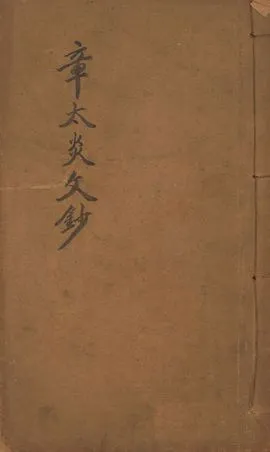 章太炎文鈔